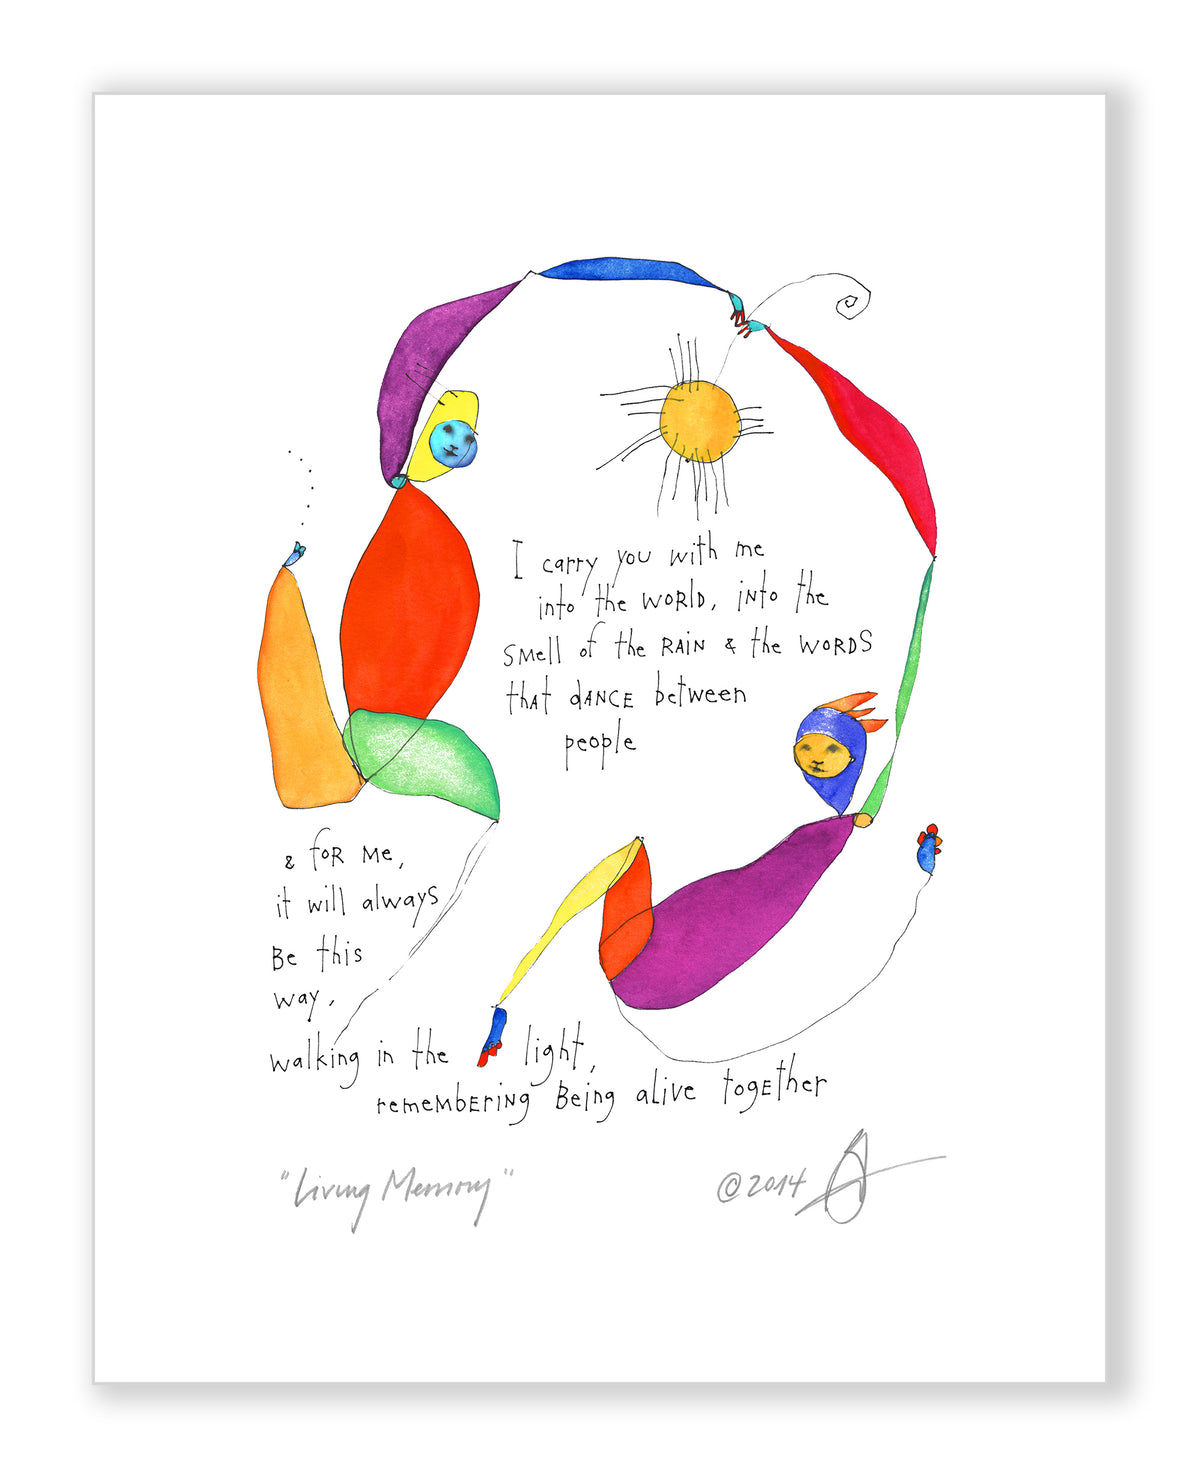 I carry you with me
into the WORLD, iNto the
SMell of the RAiN & the WORDS
thAt dANCE between
people
& foR Me,
it will always
Be this
way,
walking in the light,
remeMBERiNg Being alive togEther
"Living Memory"
©2014